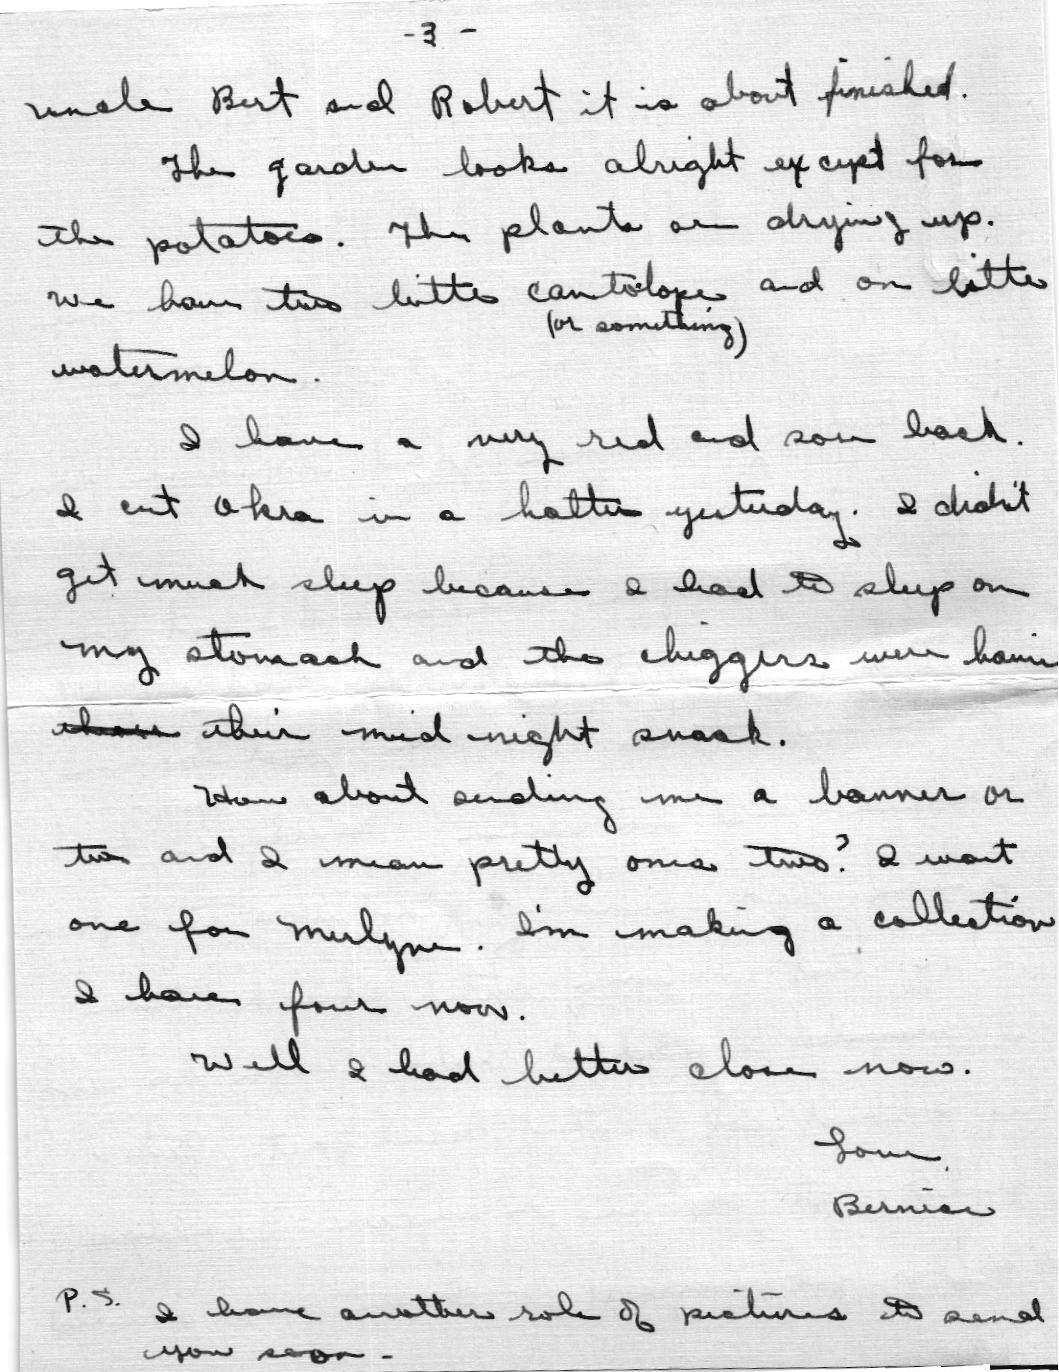 - 3 -
uncle Bert and Robert it is about finished.
The garden looks alright except for
the potatoes. The plants are drying up.
We have two little cantolope and one little
(or something)
watermelon.
I have a very red and sore back.
I cut Okra in a halter yesterday. I didn't
get much sleep because I had to sleep on
my stomach and the chiggers were havin
their mid night snack.
How about sending me a banner or
two and I mean pretty ones two? I want
one for Merlyne. I'm making a collection
I have four now.
Well I had better close now.
Love,
Bernice
P.S. I have another role of pictures to send
you soon -